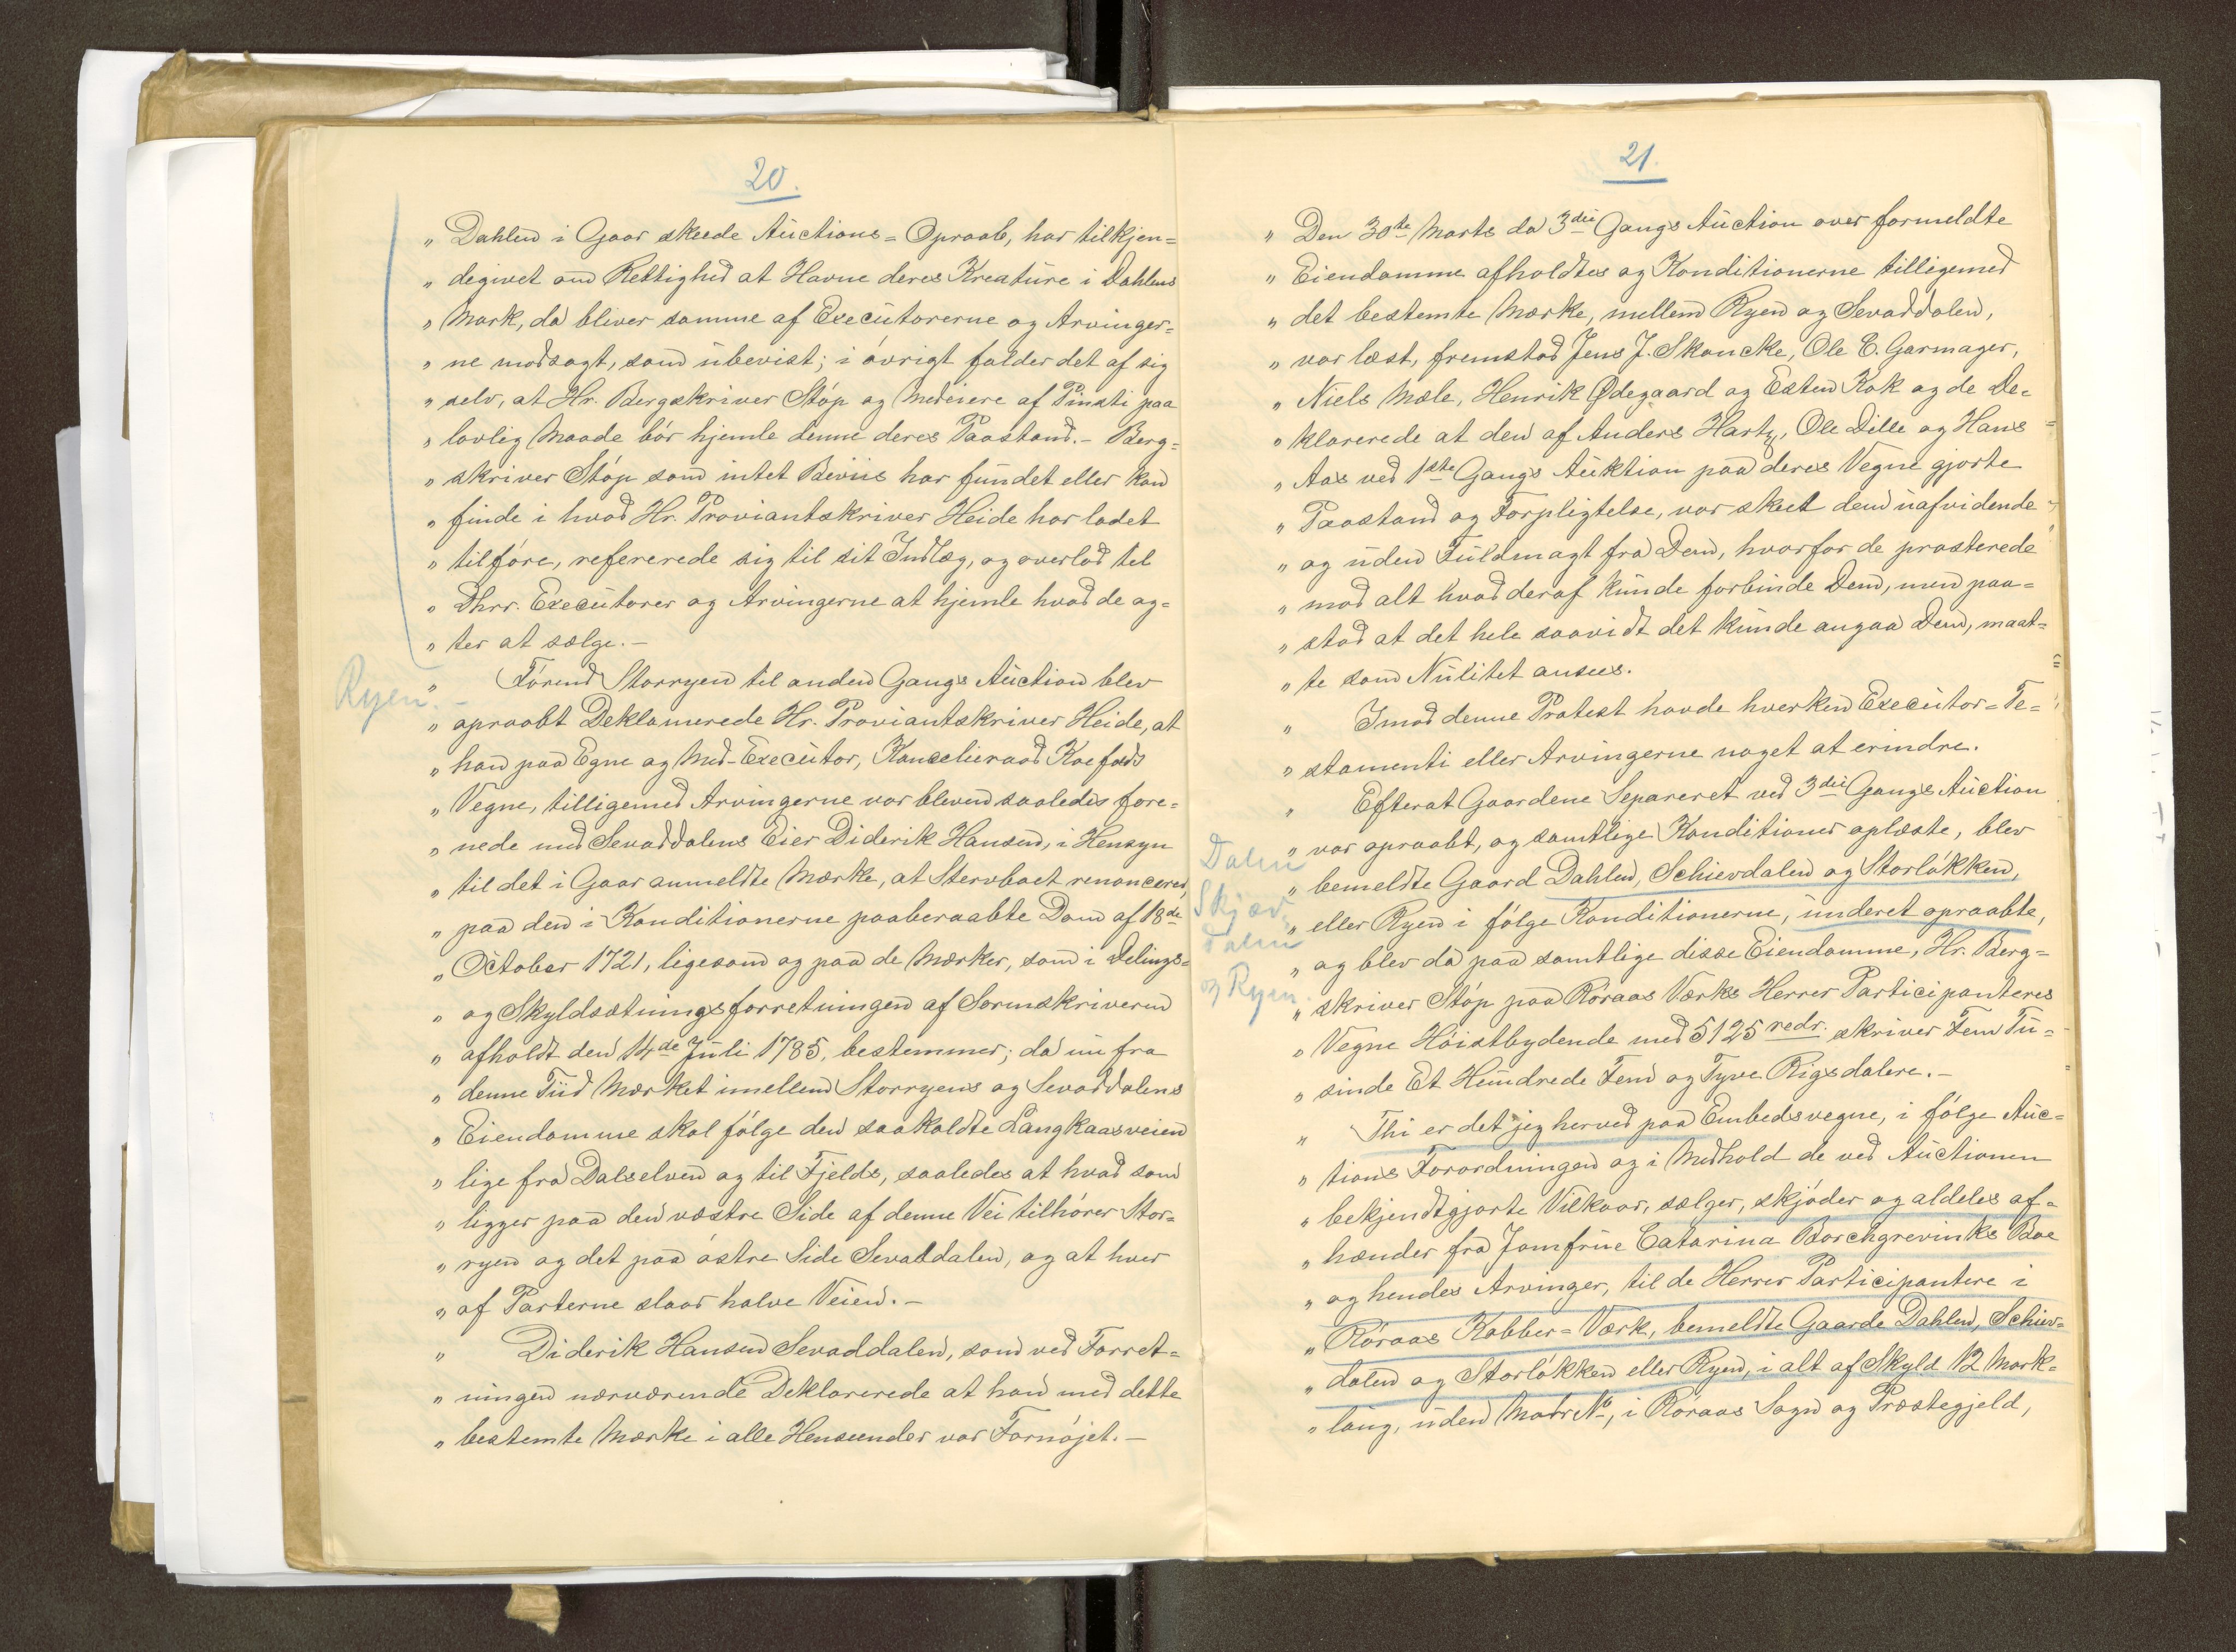 20.
„ Dahlen i Gaar skeede Auctions=Opraab, har tilkjen=
„ degivet om Rettighed at Havne deres Kreature i Dahlens
„ Mark, da bliver samme af Executorerne og Arvinger=
„ ne modsagt, som ubevist; i øvrigt falder det af sig
„ selv, at Hr. Bergskriver Støp og Medeiere af Tinsti paa
„ lovlig Maade bør hjemle denne deres Paastand.- Berg=
„ skriver Støp som intet Beviis har fundet eller kan
„ finde i hvad Hr. Proviantskriver Heide har ladet
„ tilføre, refererede sig til sit Indlæg, og overlod til
„ Dhrr. Executorer og Arvingerne at hjemle hvad de ag=
„ ter at sælge.-
Ryen.-
„ Førend Storryen til anden Gangs Auction blev
„ opraabt Deklamerede Hr. Proviantskriver Heide, at
„ han paa Egne og Med-Executor, Kancelieraad Koefoeds
„ Vegne, tilligemed Arvingerne var bleven saaledes fore=
„ nede med Sevaddalens Eier Diderik Hansen, i Hensyn
„ til det i Gaar anmeldte Mærke, at Stervboet renoncerer,
„ paa den i Konditionerne paaberaabte Dom af 18de
„ October 1721, ligesom og paa de Mærker, som i Delings=
„ og Skyldsætningsforretningen af Sorenskriveren
„ afholdt den 14de Juli 1785, bestemmer; da nu fra
„ denne Tiid Mærket imellem Storryens og Sevaddalens
„ Eiendomme skal følge den saakaldte Langkaasveien
„ lige fra Dalselven og til Fjelds, saaledes at hvad som
„ ligger paa den væstre Side af denne Vei tilhører Stor=
„ ryen og det paa østre Side Sevaddalen, og at hver
„ af Parterne slaar halve Veien.-
„ Diderik Hansen Sevaddalen, som ved Forret=
„ ningen nærværende Deklarerede at han med dette
„ bestemte Mærke i alle Henseender var Fornøjet.-
21.
„ Den 30te Marts da 3die Gangs Auction over formeldte
„ Eiendomme afholdtes og Konditionerne tilligemed
„ det bestemte Mærke, mellem Ryen og Sevaddalen,
„ var læst, fremstod Jens J. Skancke, Ole E. Garmager,
„ Niels Mæle, Henrik Ødegaard og Esten Kok og de De=
„ klarerede at den af Anders Hartz, Ole Dille og Hans
„ Aas ved 1ste Gangs Auktion paa deres Vegne gjorte
„ Paastand og Forpligtelse, var skeet dem uafvidende
„ og uden Fuldmagt fra Dem, hvorfor de prosterede
„ mod alt hvad deraf kunde forbinde Dem, men paa=
„ stod at det hele saavidt det kunde angaa Dem, maat=
„ te som Nulitet ansees.
„ Imod denne Protest havde hverken Executor=Te=
„ stamenti eller Arvingerne noget at erindre.
„ Efterat Gaardene Separeret ved 3die Gangs Auction
„ var opraabt, og samtlige Konditioner oplæste, blev
Dalen
Skjæv
dalen
og Ryen.
„ bemeldte Gaard Dahlen, Schievdalen og Storløkken,
„ eller Ryen i følge Konditionerne, underet opraabte,
„ og blev da paa samtlige disse Eiendomme, Hr. Berg=
„ skriver Støp paa Røraas Værks Herrer Participanteres
„ Vegne Høistbydende med 5125 redr. skriver Fem Tu=
„ sinde Et Hundrede Fem og Tyve Rigsdalere.-
„ Thi er det jeg herved paa Embedsvegne, i følge Auc=
„ tions Forordningen og i Medhold de ved Auctionen
„ bekjendtgjorte Vilkaar, sælger, skjøder og aldeles af=
„ hænder fra Jomfrue Catarina Borchgrevinks Boe
„ og hendes Arvinger, til de Herrer Participantere i
„ Røraas Kobber=Værk, bemeldte Gaarde Dahlen, Schiev=
„ dalen og Storløkken eller Ryen, i alt af Skyld 12 Mark=
„ laug, uden Matr No, i Røraas Sogn og Præstegjeld,